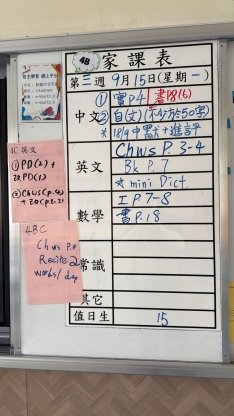 4B
家課表
第三週 9月15日(星期一)
中文
① 書P.4
書P8(6)
② 自(文)(不少於50字)
* 18/9 中默+進評
英文
Chws P. 3-4
Bk P. 7
* mini Dict
數學
工P.7-8
書P.18
常識
其它
值日生 15
4C 英文
① PD(2) +
改PD(1)
4BC
Chws P.4
Recite 2
words/day